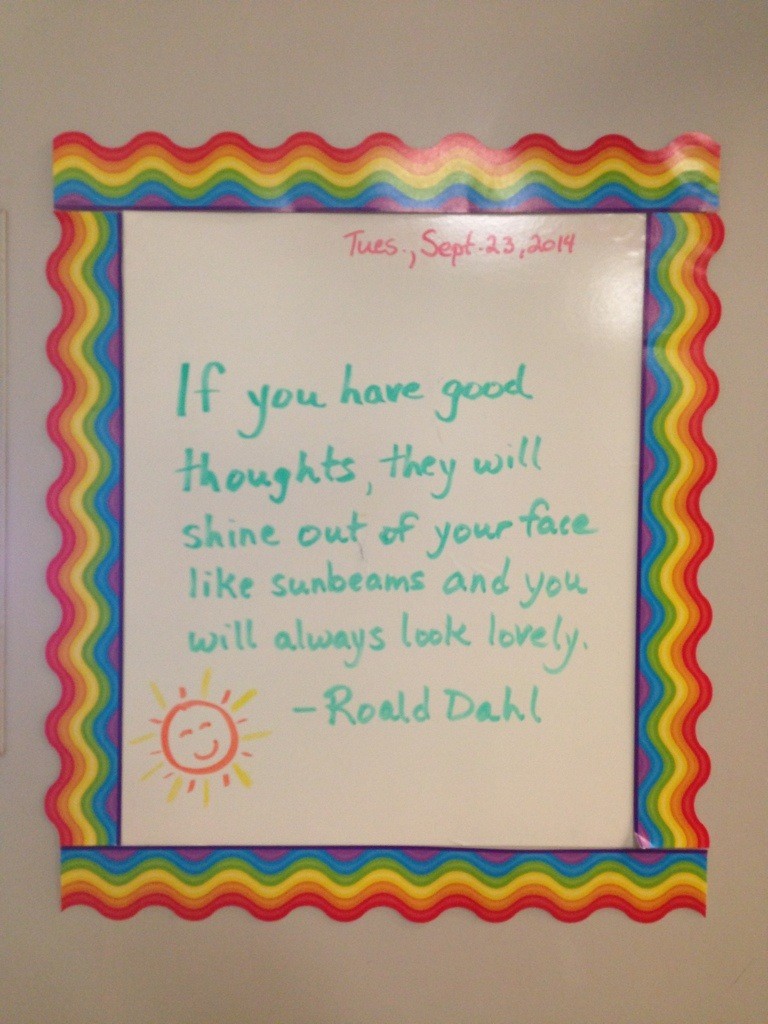 Tues., Sept. 23, 2014
If you have good
thoughts, they will
shine out of your face
like sunbeams and you
will always look lovely.
- Roald Dahl